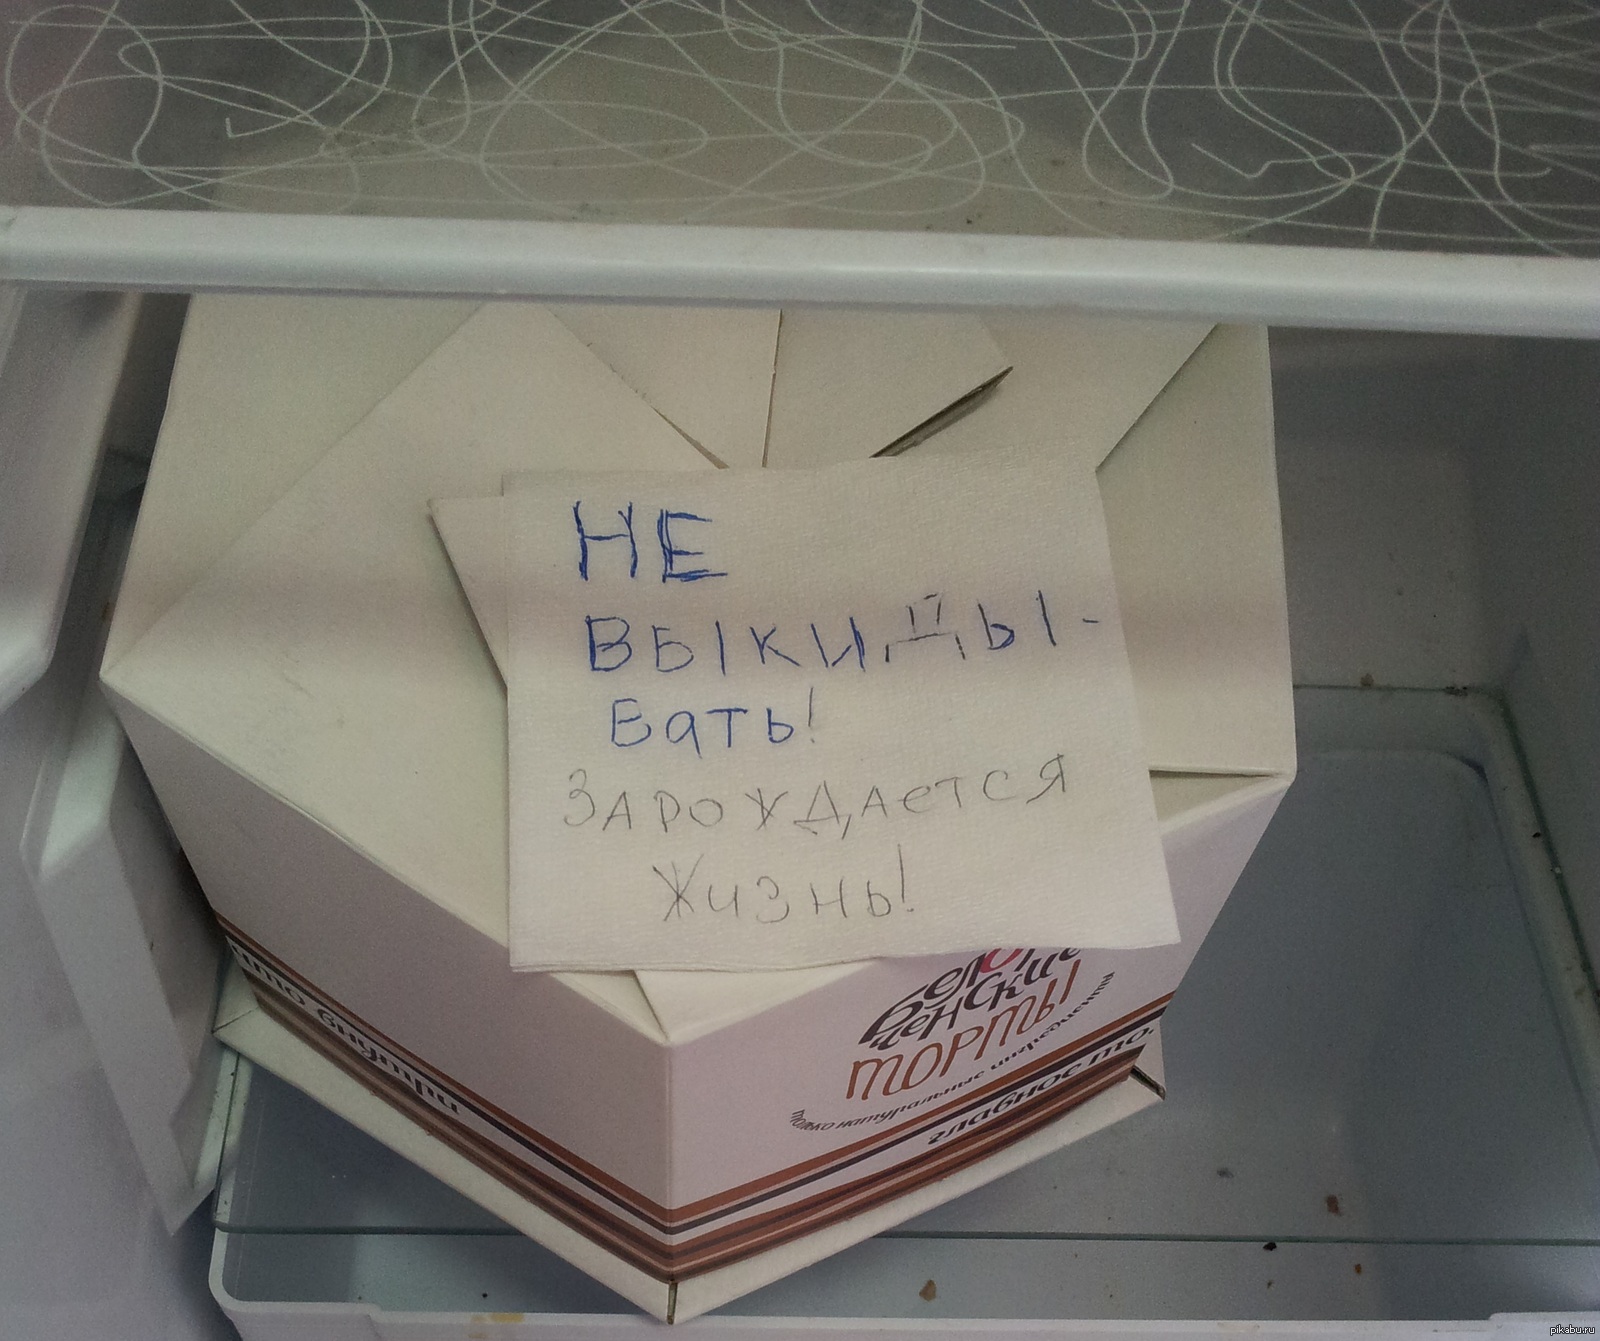 НЕ
ВЫКИДЫ-
ВАТЬ!
ЗАРОЖДАЕТСЯ
ЖИЗНЬ!
ценские
торты
только натуральные ингредиенты
главное то,
что внутри
pikabu.ru